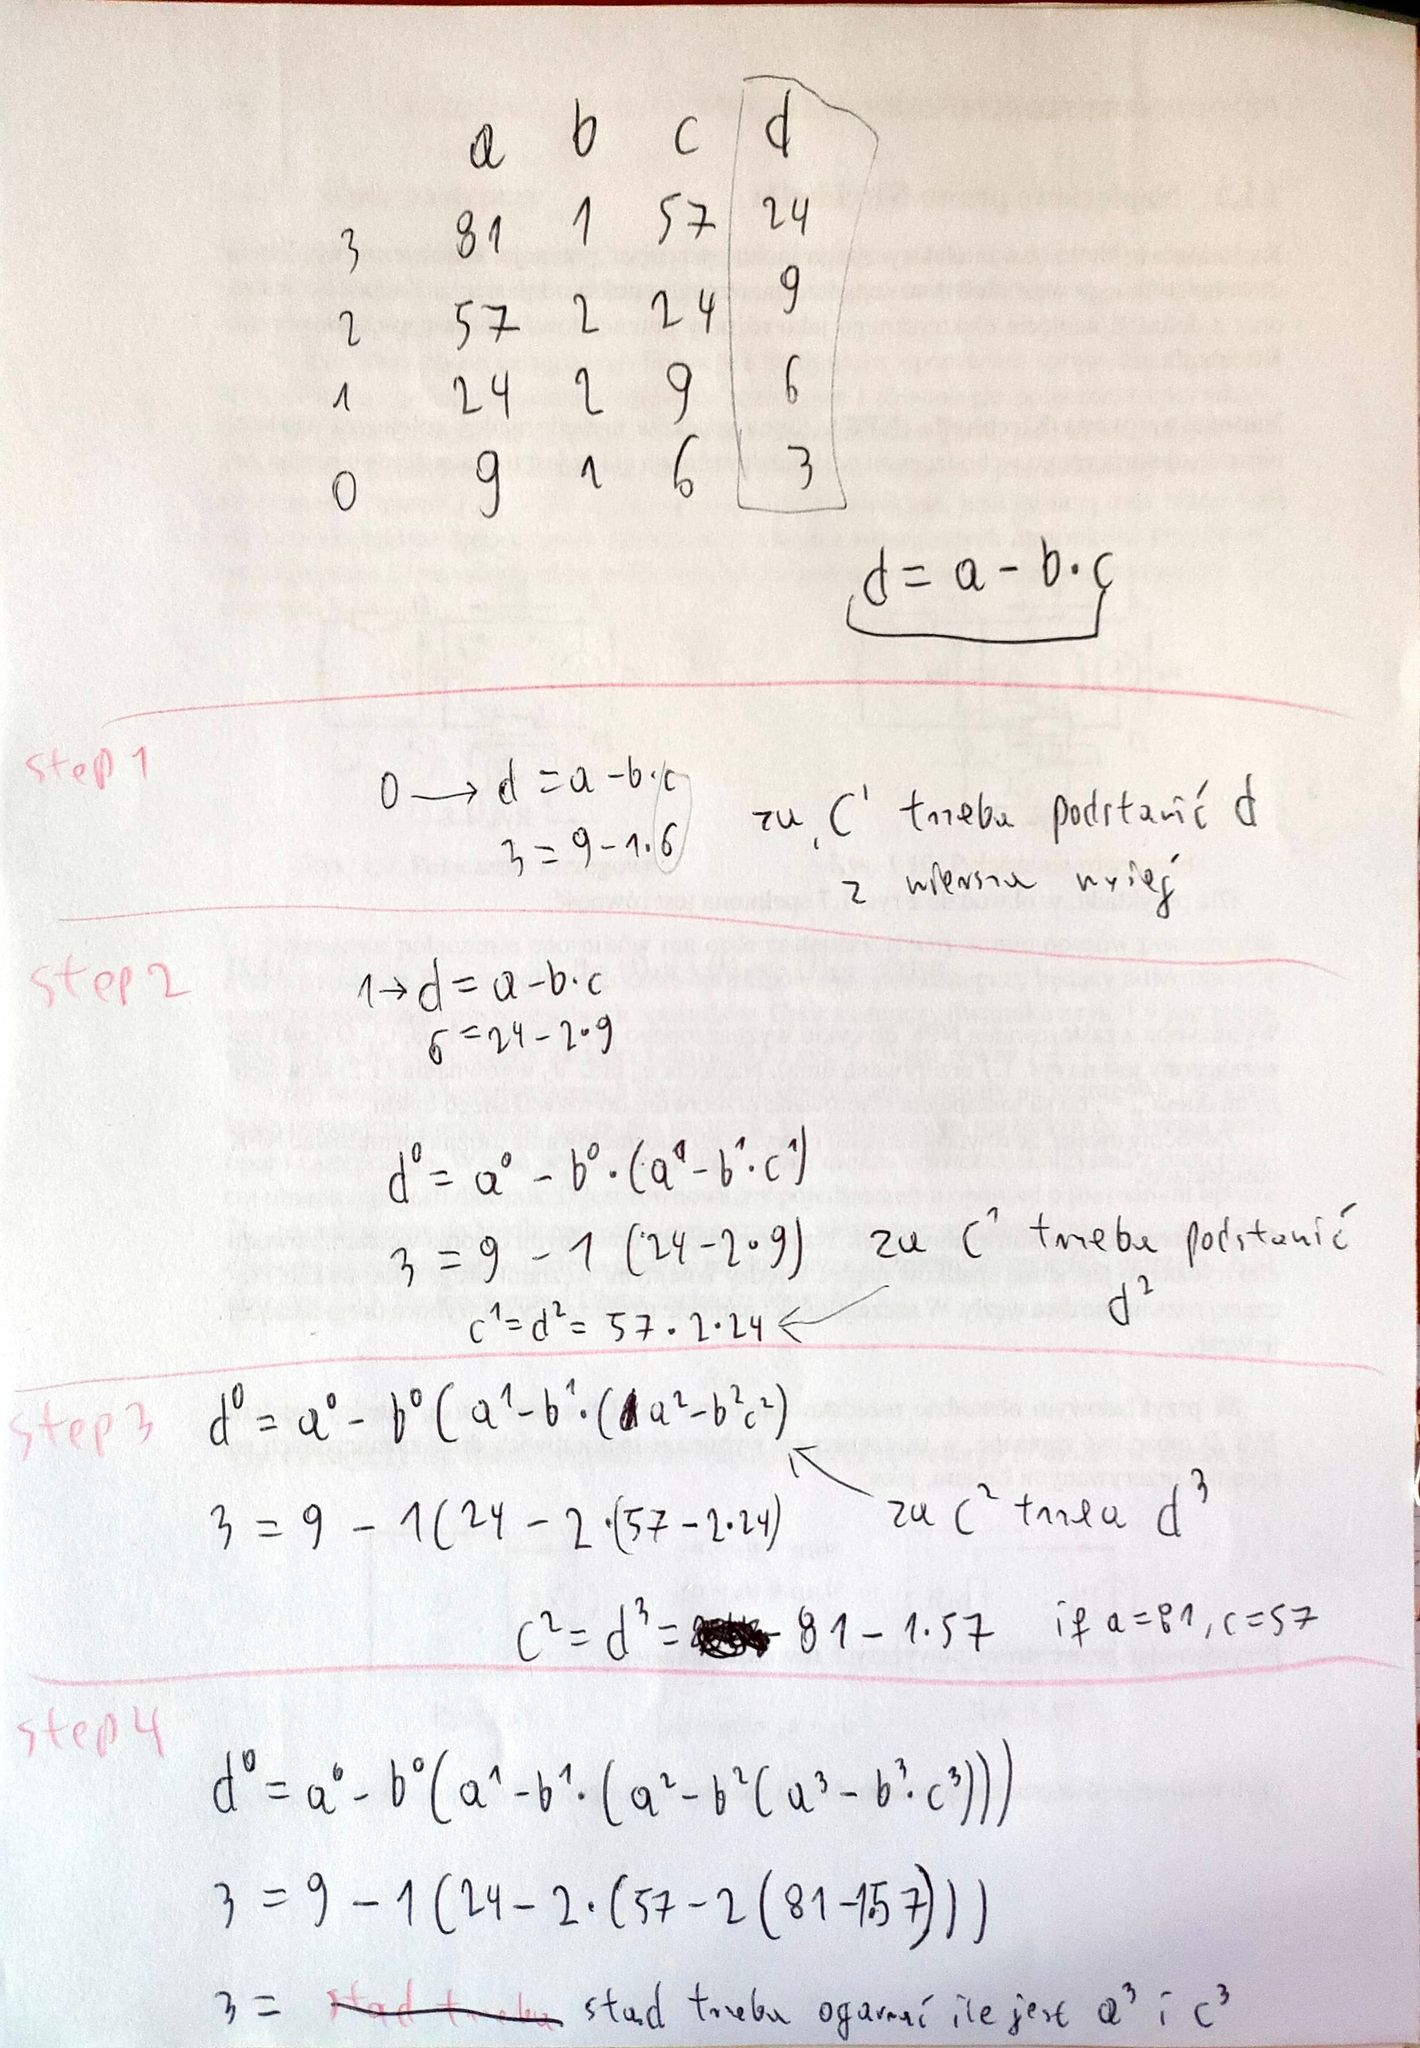 a b c d
3 81 1 57 24
2 57 2 24 9
1 24 2 9 6
0 9 1 6 3
d = a - b·c
step 1
0 → d = a - b·c
3 = 9 - 1·6
za C¹ trzeba podstawić d
z wiersza wyżej
step 2
1 → d = a - b·c
6 = 24 - 2·9
d⁰ = a⁰ - b⁰·(a¹ - b¹·c¹)
3 = 9 - 1 (24 - 2·9)
za C¹ trzeba podstawić
d²
c¹ = d² = 57 · 2·24
step 3
d⁰ = a⁰ - b⁰(a¹ - b¹·(a² - b²c²)
3 = 9 - 1(24 - 2·(57 - 2·24)
za C² d³
c² = d³ = 81 - 1·57 if a=81, c=57
step 4
d⁰ = a⁰ - b⁰(a¹ - b¹·(a² - b²(a³ - b³·c³)))
3 = 9 - 1(24 - 2·(57 - 2(81 - 1·57)))
3 = stąd trzeba ogarnąć ile jest a³ i c³